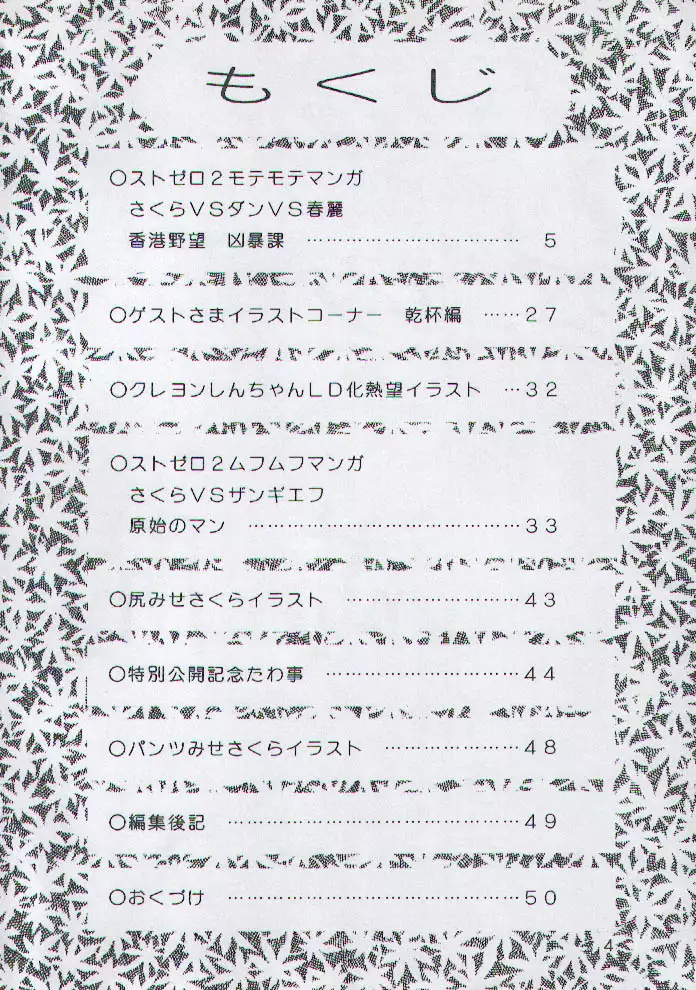 もくじ
○ストゼロ２モテモテマンガ
さくらＶＳダンＶＳ春麗
香港野望　凶暴課 ………………………… 5
○ゲストさまイラストコーナー　乾杯編 ……２７
○クレヨンしんちゃんＬＤ化熱望イラスト …３２
○ストゼロ２ムフムフマンガ
さくらＶＳザンギエフ
原始のマン ……………………………………３３
○尻みせさくらイラスト ………………………４３
○特別公開記念たわ事 …………………………４４
○パンツみせさくらイラスト …………………４８
○編集後記 ………………………………………４９
○おくづけ ………………………………………５０
4